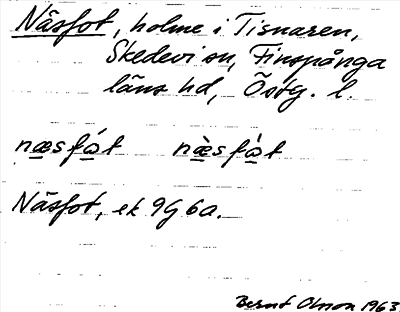 Näsfot, holme i Tisnaren,
Skedevi sn, Finspånga
läns hd, Östg. l.
næsfάt næ̀sfάt
Näsfot, ek 9G 6a.
Bernt Olsson 1963.